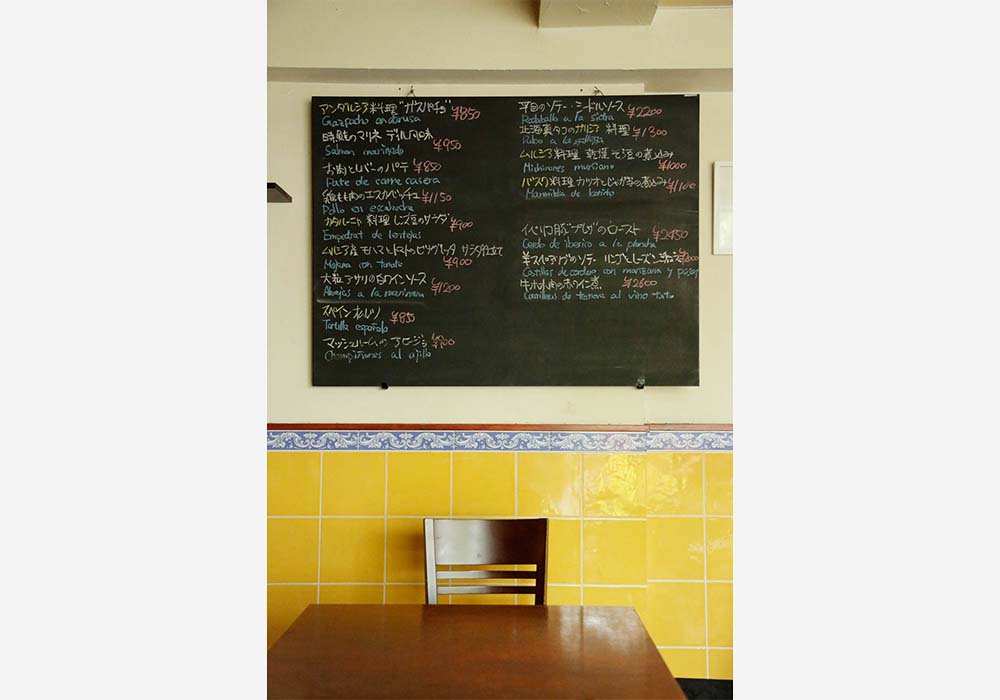 アンダルシア料理"ガスパチョ" ¥850
Gazpacho andarusa
時鮭のマリネ ディル風味 ¥950
Salmon marinado
お肉とレバーのパテ ¥850
Pate de carne casera
鶏もも肉のエスカベッチュ ¥1150
Pollo en escabeche
カタルーニャ料理 レンズ豆のサラダ ¥900
Empedrat de lentejas
ムルシア産モハマとトマトの サラダ仕立て
Mojama con tomate ¥900
大粒アサリの白ワインソース
Almejas a la marinera ¥1200
スペインオムレツ ¥850
Tortilla española
マッシュルームのアヒージョ
Champiñones al ajillo
平目のソテー・シードルソース ¥2200
Rodaballo a la sidra
北海真タコのガリシア料理 ¥1300
Pulpo a la gallega
ムルシア料理 乾燥そら豆の煮込み
Michirones murciano ¥1000
バスク料理 カツオとじゃが芋の煮込み ¥1100
Marmitako de bonito
イベリコ豚 のロースト ¥2450
Cerdo de iberico a la plancha
羊スペアリブのソテー リンゴとレーズン
Costillas de cordero con manzana y pasas
牛ホホ肉の赤ワイン煮 ¥2600
Carrilleras de ternera al vino tinto